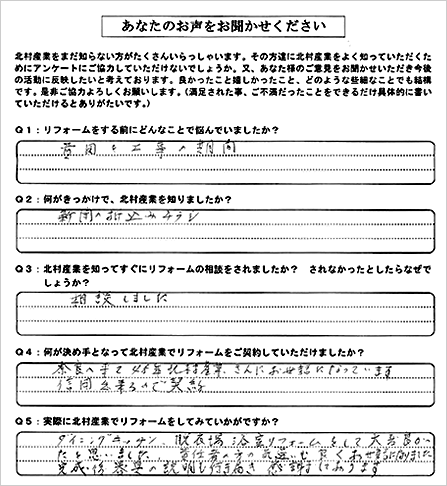 あなたのお声をお聞かせください
北村産業をまだ知らない方がたくさんいらっしゃいます。その方達に北村産業をよく知っていただくため
にアンケートにご協力していただけないでしょうか。又、あなた様のご意見をお聞かせいただき今後
の活動に反映したいと考えております。良かったこと嬉しかったこと、どのような些細なことでも結構
です。是非ご協力よろしくお願いします。（満足された事、ご不満だったことをできるだけ具体的に書い
ていただけるとありがたいです。）
Q1：リフォームをする前にどんなことで悩んでいましたか？
費用と工事の期間
Q2：何がきっかけで、北村産業を知りましたか？
新聞の折込みチラシ
Q3：北村産業を知ってすぐにリフォームの相談をされましたか？ されなかったとしたらなぜで
しょうか？
相談しました
Q4：何が決め手となって北村産業でリフォームをご契約していただけましたか？
北村産業さんにお世話になっています
信用出来るので契約
Q5：実際に北村産業でリフォームをしてみていかがですか？
ダイニングキッチン、脱衣場、浴室リフォームをして大変良かっ
たと思いました
完成後 器具の説明も行き届き 感謝しております